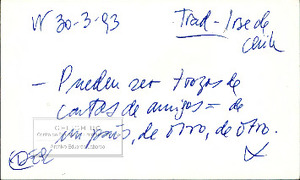 W 30-3-93 Trad-Irse de
— Pueden ser trozos de
cartas de amigos = de
un país, de otro, de otro.